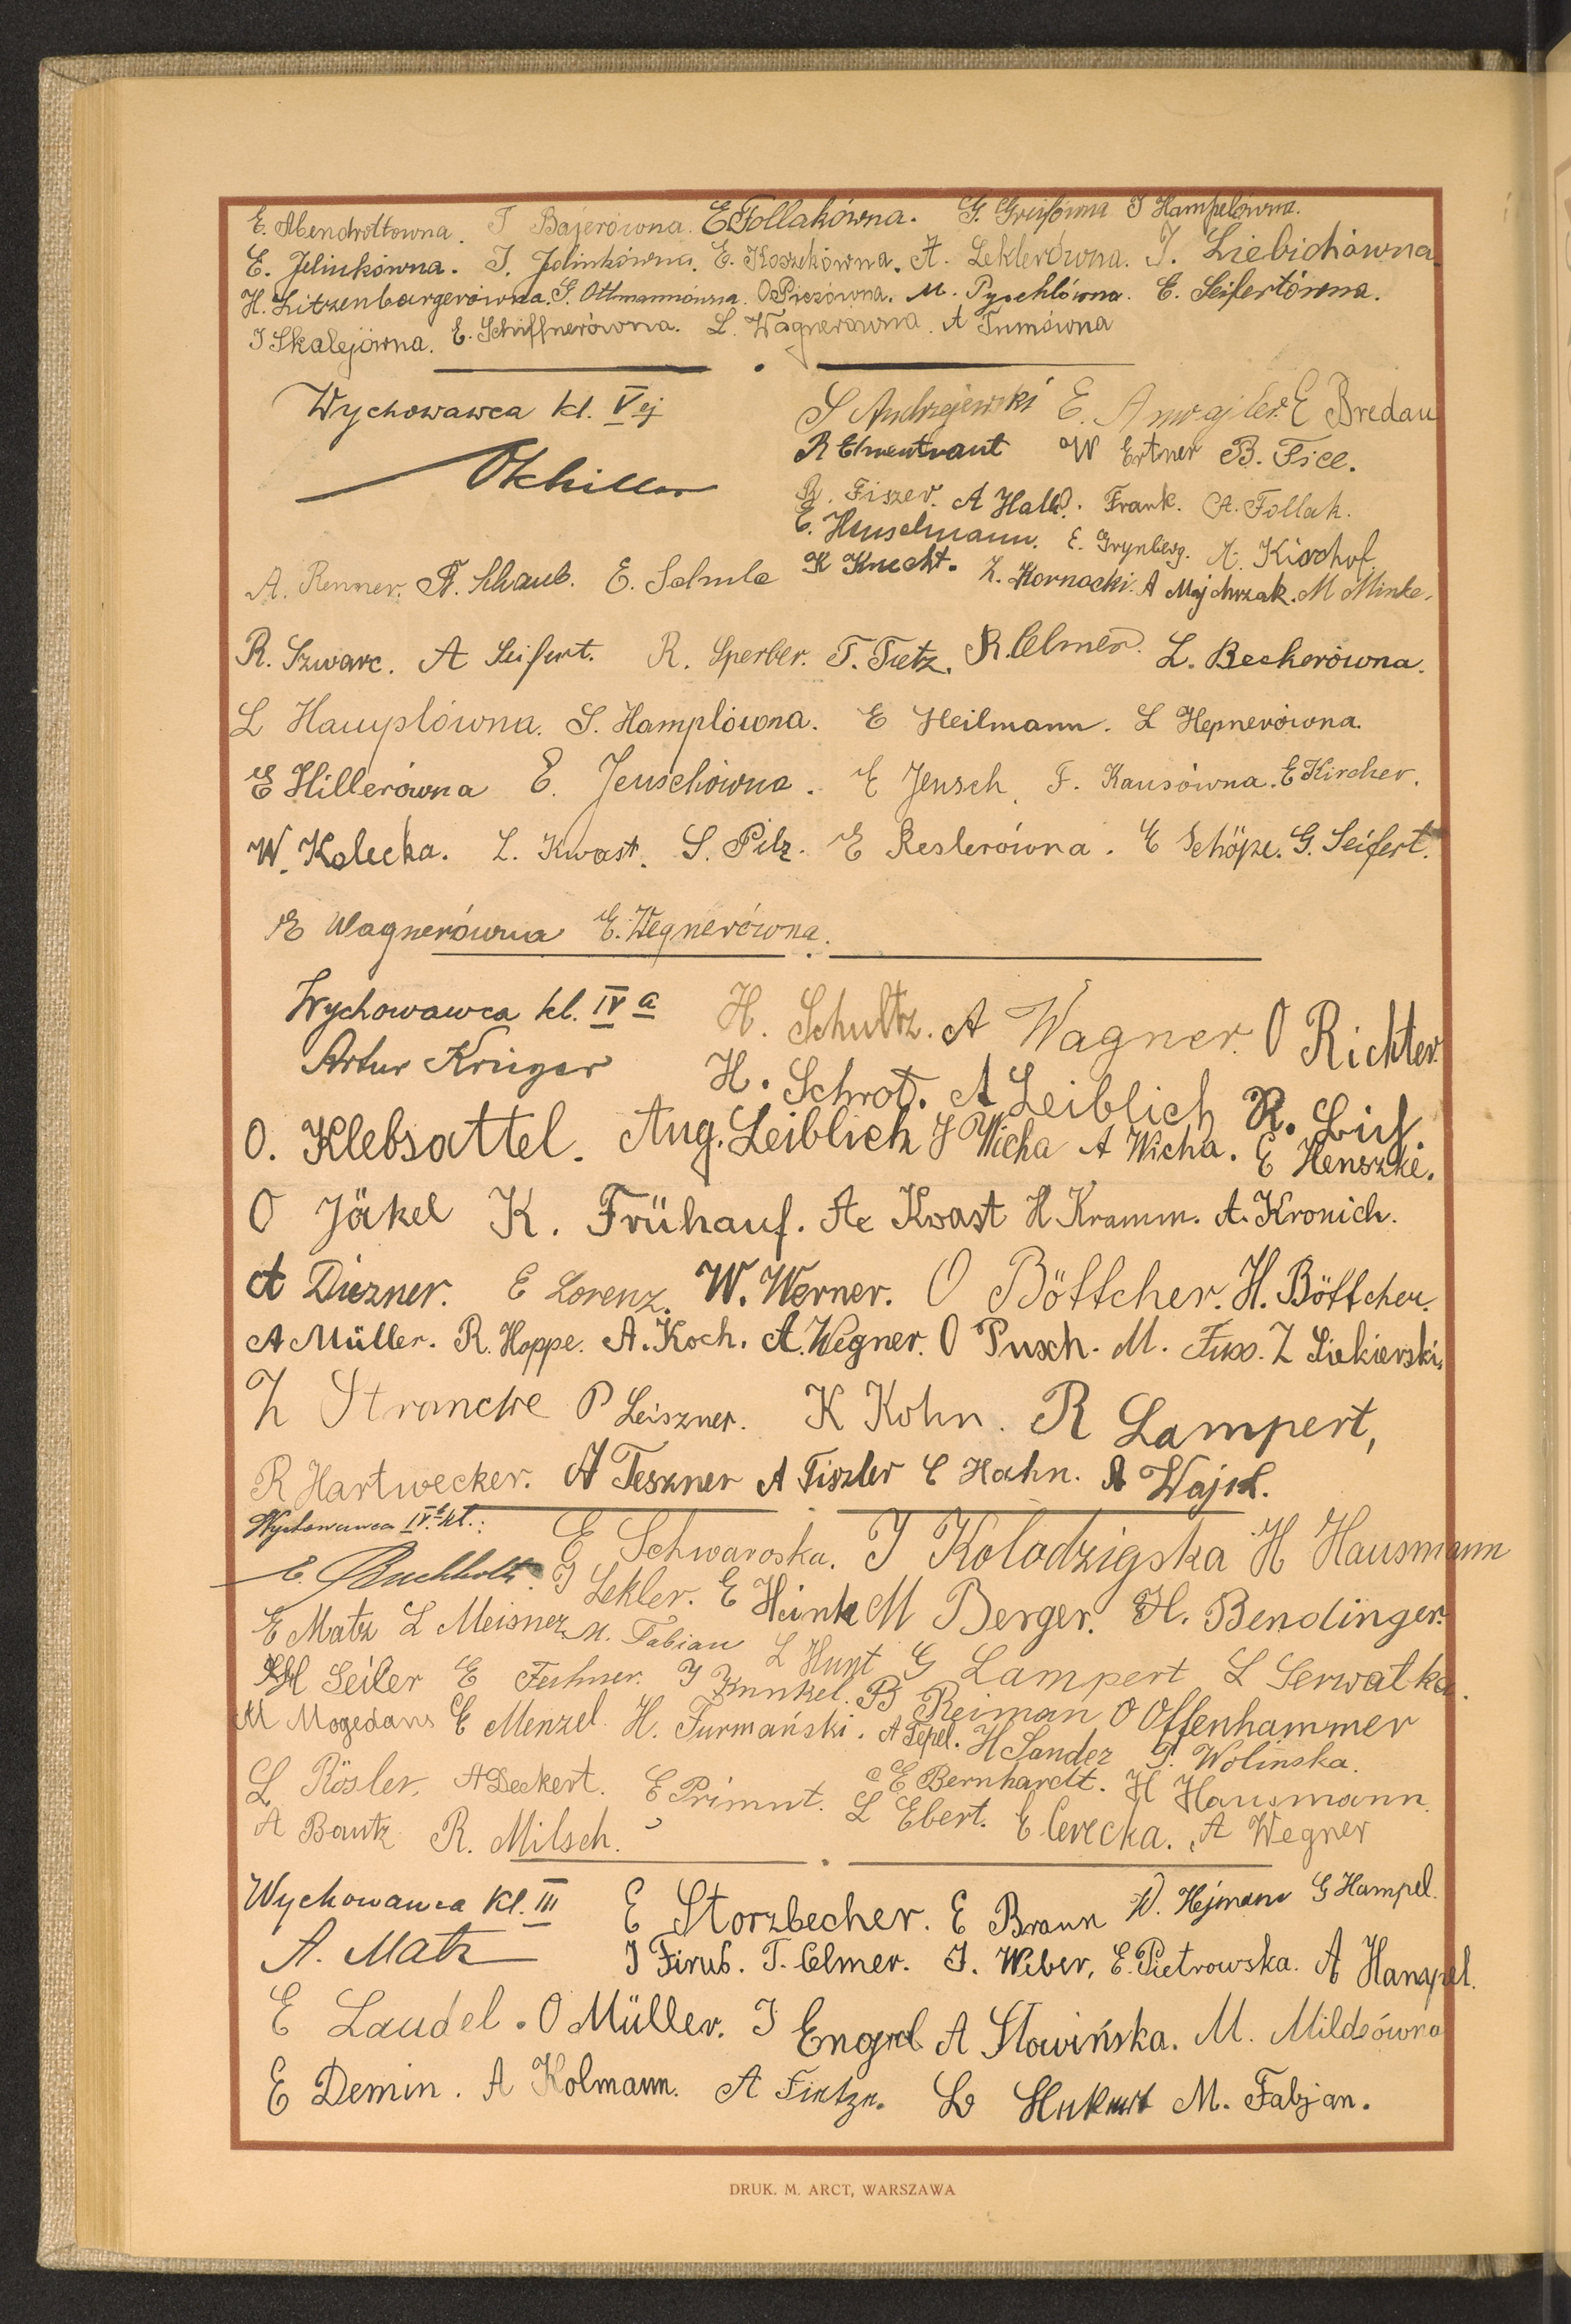 E. Abendrottowna. I Bajerówna. E Follakówna. G. I Hampelówna.
E. Jelinkówna. I. Jelinkówna. E. Koszekówna. A. Leklerówna. I. Liebichówna.
H. Litzenbargerówna. G. Ottmannówna. O Piczówna. M. Pyschlówna. E. Seifertówna.
I Skalejówna. E. Schiffnerówna. L. Wagnerówna. A Tumówna
Wychowawca kl. V ej
S Andrzejewski E. Anwajler. E Bredau
R Elmentraut W Ertner B. Fice.
R. Fiszer. A Halb. Frank. A. Follak.
E. Henselmann. E. Grynberg. A. Kirchhof
K Knecht. Z. Kornacki. A Majchrzak. M Minke.
A. Renner. F. Schaub. E. Schulc
R. Szwarc. A Seifert. R. Sperber. T. Tietz. R. Ulmer. L. Beckerówna.
L Hamplówna. S. Hamplówna. E Heilmann. L Hepnerówna.
E Hillerówna E. Jenschówna. E Jensch. F. Kausówna. E Kircher.
W. Kolecka. L. Kwast. S. Pilz. E Reslerówna. E Schöpe. G. Seifert.
E Wagnerówna E. Wegnerówna.
Wychowawca kl. IV a
Artur Krüger
H. Schultz. A Wagner. O Richter.
H. Schrot. A Leiblich R. Lif.
O. Klebsattel. Aug. Leiblich J Wicha A Wicha. E Henszke.
O Jäkel K. Frühauf. A Kwast H Kramm. A. Kronich.
A Diezner. E Lorenz. W. Werner. O Böttcher. H. Böttcher.
A Müller. R. Hoppe. A. Koch. A. Wegner. O Pusch. M. Fuss. Z Siekierski.
Z Strancke P Leiszner. K Kohn. R Lampert,
R Hartwecker. A Teszner A Fiszler E Hahn. A Wajs.
Wychowawca IV.b kl.:
E. Buchholtz.
E Schwaroska. I Kolodzigska H Hausmann
I Lekler. E Heink M Berger. H. Bendinger.
E Matz L Meisner M. Fabian L Hunt G Lampert L Serwatka.
H Seiler E Fechner. I Kunkel. B Reiman O Offenhammer
M Mogedans E Menzel. H. Furmański. A Tepel. H Sander T. Wolinska.
L Rösler. A Deckert. E Primut. E Bernhardt. H Hausmann.
A Bautz R. Milsch. L Ebert. E Cerecka. A Wegner
Wychowawca kl. III
A. Matz
E Storzbecher. E Braun W. Hejmann G Hampel.
I Firus. T. Elmer. I. Weber, E. Pietrowska. A Hampel.
E Laudel. O Müller. I Engel A Słowińska. M. Mildeówna
E Demin. A Kolmann. A Fietze. L M. Fabjan.
DRUK. M. ARCT, WARSZAWA